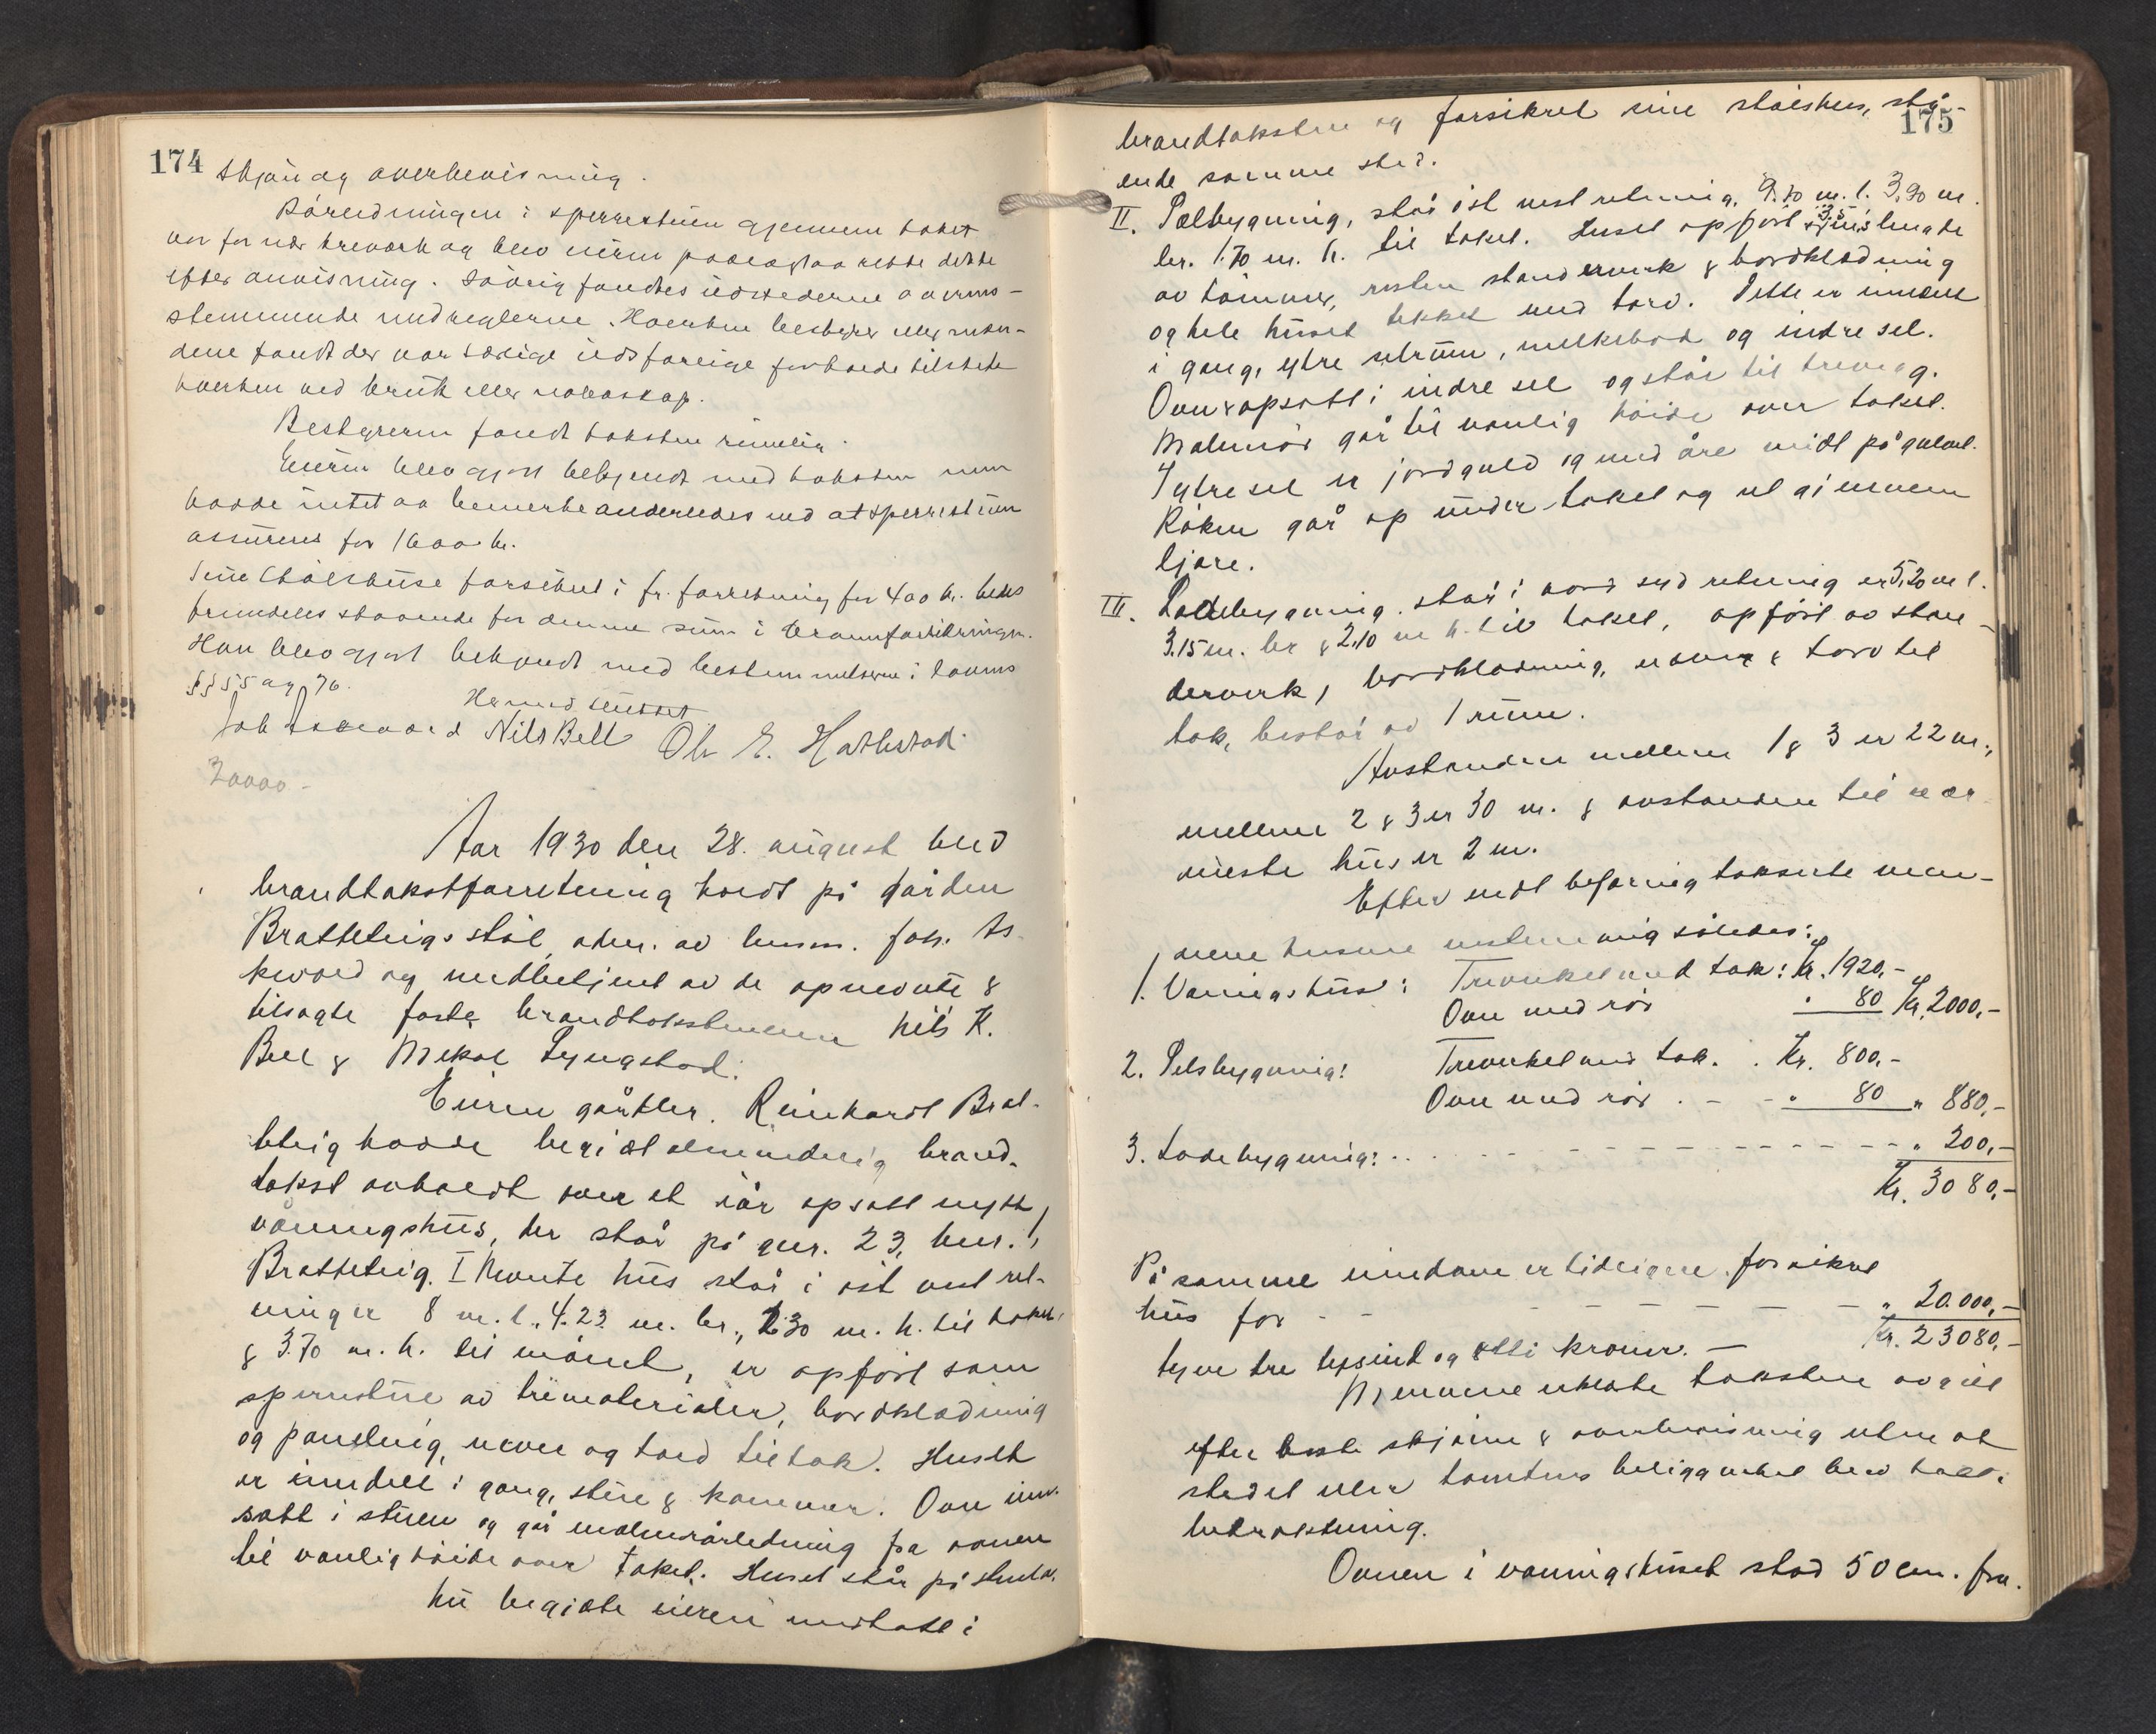 174
skjøn og overbevisning.
Rörledningen i sperrestuen gjennem taket
var for nær treverk og blev eieren paalagt aa rette dette
efter anvisning. Iövrig fandtes ildstederne overens-
stemmende med reglerne. Hverken bestyrer eller mæn-
dene fandt der var særlige ildsfarlige forhold tilstede
hverken ved bruk eller naboskap.
Bestyreren fandt taksten rimelig.
Eieren blev gjort bekjendt med taksten men
hadde intet aa bemerke anderledes end at sperrestuen
assureres for 1600 kr.
Sine stölshuse forsikret i fr. forretning for 400 kr. bedes
fremdeles staaende for denne sum i brannforsikringen.
Han blev gjort bekjendt med bestemmelserne i lovens
§§ 55 og 76.
Hermed sluttet
Joh Askevold Nils Bell Ole E. Hatlestad
20000 -
Aar 1930 den 28. august blev
brandtakstforretning holdt på gården
Bratteteigs støl, adm. av lensm. Joh. As-
kevold og medbetjent av de opnevnte &
tilsagte faste brandtakstmenn Nils K.
Bell & Mikal Lyngstad.
Eieren gårdbr. Reinhardt Brat-
teteig hadde begjært almindelig brand-
takst avholdt over et iår opsatt nytt
våningshus, der står på gnr. 23, bnr. 1,
Bratteteig. I Nevnte hus står i øst vest ret-
ning er 8 m. l., 4.23 m. br., 2.30 m. h. til taket,
& 3.70 m. h. til mønet, er opført som
sperrestue av trematerialer, bordklædning
og paneling, never og torv til tak. Huset
er inndelt i gang, stue & kammer. Ovn inn-
satt i stuen og går malmrørledning fra ovnen
til vanlig høide over taket. Huset står på stuta.
Nu begjærte eieren medtatt i
175
brandtaksten og forsikret sine stølshus, stå-
ende samme sted.
II. Sælbygning, står øst vest retning, 9.70 m. l. 3.90 m.
br. 1.70 m. h. til taket. Huset opført
av tømmer, resten standerverk & bordklædning
og hele huset tekket med torv. Dette er inndelt
i gang, ytre selrum, melkebod og indre sel.
Ovn opsatt i indre sel og står til trevegg.
Malmrör går til vanlig høide over taket.
I ytre sel er jordgulv og med åre midt på gulvet.
Røken går op under taket og ut gjennem
ljore.
III. Lødebygning. står i nord syd retning er 5.20 m l.
3.15 m. br & 2.10 m h. til taket, opført av stan-
derverk, bordklædning, never & torv til
tak, består av 1 rum.
Avstanden mellem 1 & 3 er 22 m.,
mellem 2 & 3 er 30 m. & avstanden til nær-
meste hus er 2 m.
Efter endt befaring takserte men-
nene husene enstemmig således:
1. Våningshus: Treverket med tak: Kr. 1920,-
Ovn med rör " 80 Kr. 2000,-
2. Selsbygning: Treverket med tak. . Kr. 800,-
Ovn med rör . - - " 80 " 880,-
3. Lødebygning: . . - - - - - " 200,-
Kr. 3080,-
På samme eiendom er tidligere forsikret
hus for - - - - - - " 20.000,-
Kr. 23080,-
tyve tre tusind og otti kroner. -
Mennene erklærte taksten avgitt
efter beste skjønn & overbevisning uten at
stedet eller tomtens beliggenhet blev tatt i
betraktning.
Ovnen i våningshuset stod 50 cm. fra